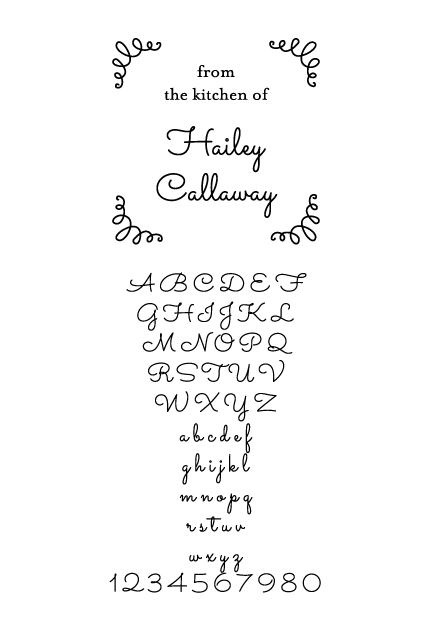 from
the kitchen of
Hailey
Callaway
A B C D E F
G H I J K L
M N O P Q
R S T U V
W X Y Z
a b c d e f
g h i j k l
m n o p q
r s t u v
w x y z
1234567980